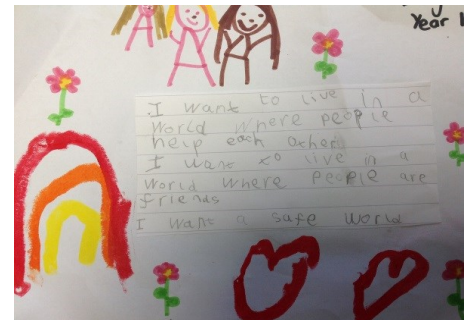 Year 1
I want to live in a
world where people
help each other
I want to live in a
world where people are
friends
I want a safe world